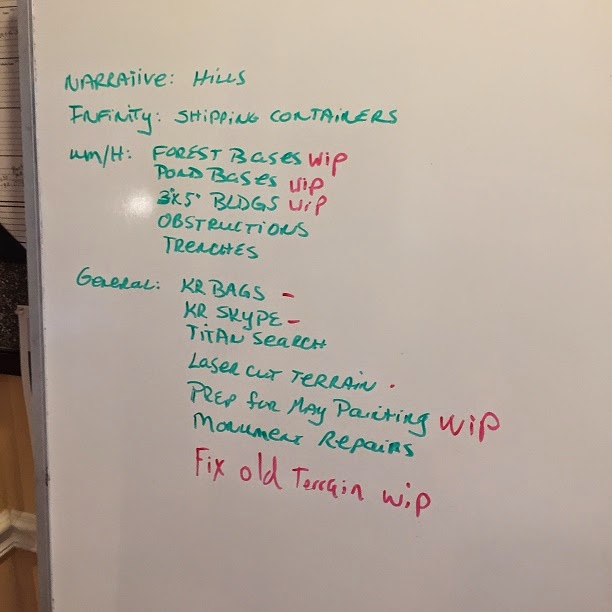 NARRATIVE: HILLS
INFINITY: SHIPPING CONTAINERS
WM/H: FOREST BASES WIP
POND BASES WIP
3"X5" BLDGS WIP
OBSTRUCTIONS
TRENCHES
General: KR BAGS -
KR SKYPE -
TITAN SEARCH
LASER CUT TERRAIN .
PREP for MAY PAINTING WIP
MONUMENT REPAIRS
Fix old Terrain WIP